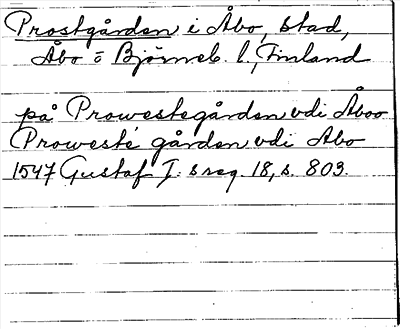 Prostgården i Åbo, stad,
Åbo o Björneb. l., Finland
på Prowestegården vdi Åboo
Proweste gården vdi Abo
1547 Gustaf I:s reg. 18, s. 803.